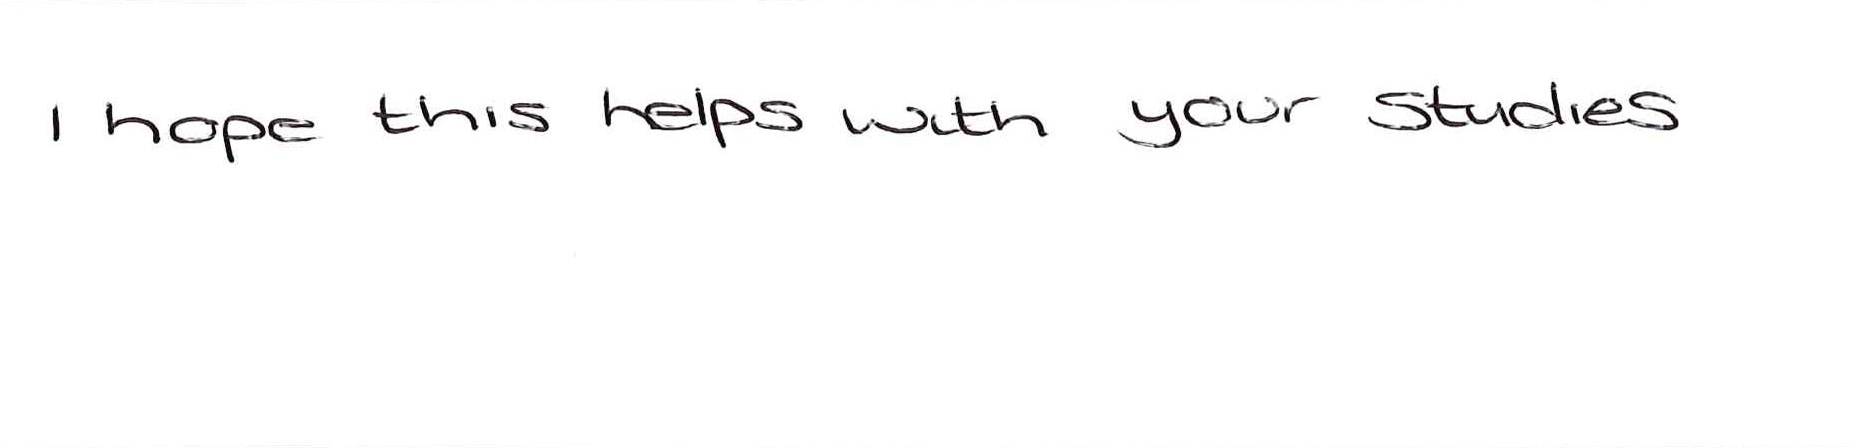 I hope this helps with your studies